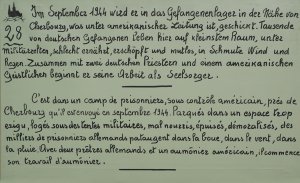 Im September 1944 wird er in das Gefangenenlager in der Nähe von
Cherbourg, was unter amerikanischer Leitung ist, geschickt. Tausende
28
von deutschen Gefangenen leben hier auf kleinstem Raum, unter
Militärzelten, schlecht ernährt, erschöpft und mutlos, in Schmutz, Wind und
Regen. Zusammen mit zwei deutschen Priestern und einem amerikanischen
Geistlicher beginnt er seine Arbeit als Seelsorger.
C'est dans un camp de prisonniers, sous contrôle américain, près de
Cherbourg qu'il est envoyé en septembre 1944. Parqués dans un espace trop
exigu, logés sous des tentes militaires, mal nourris, épuisés, démoralisés, des
milliers de prisonniers allemands pataugent dans la boue, dans le vent, dans
la pluie. Avec deux prêtres allemands et un aumônier américain, il commence
son travail d'aumônier.